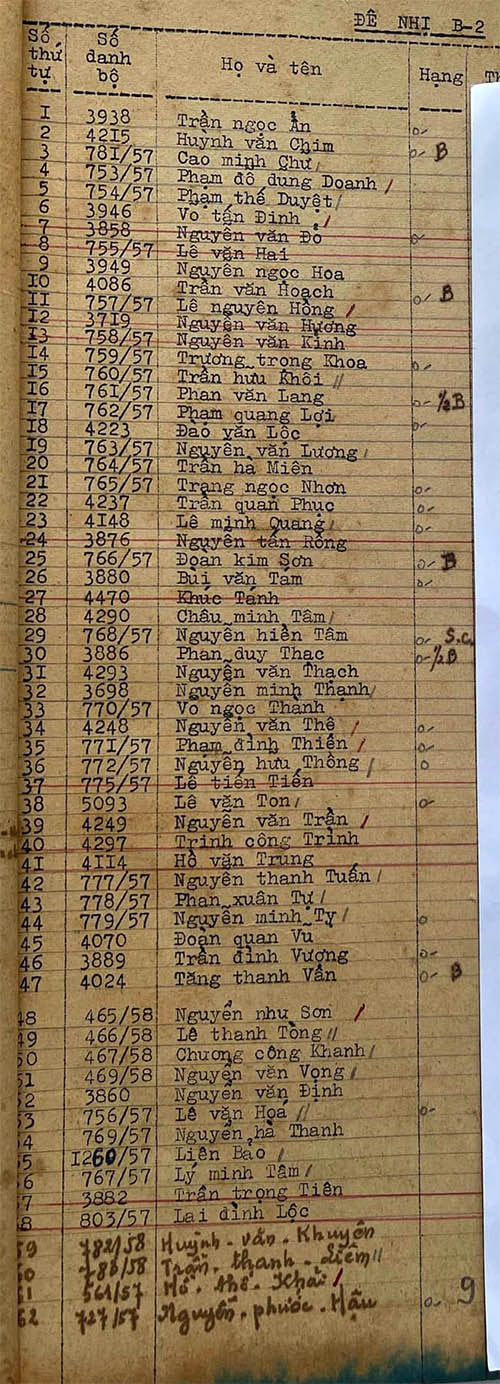 ĐỆ NHỊ B-2
Số thứ tự Số danh bộ Họ và tên Hạng
1 3938 Trần ngọc Ẩn o-
2 4215 Huỳnh văn Chim o- B
3 781/57 Cao minh Chư /
4 753/57 Phạm đỗ dung Doanh /
5 754/57 Phạm thế Duyệt /
6 3946 Vo tấn Đinh /
7 3858 Nguyễn văn Đỏ o-
8 755/57 Lê văn Hai
9 3949 Nguyễn ngọc Hoa
10 4086 Trần văn Hoạch o- B
11 757/57 Lê nguyên Hồng /
12 3719 Nguyễn văn Hương
13 758/57 Nguyễn văn Kinh
14 759/57 Trương trong Khoa o-
15 760/57 Trần hưu Khôi //
16 761/57 Phan văn Lang o- ½B
17 762/57 Phạm quang Lợi o-
18 4223 Đào văn Lộc
19 763/57 Nguyễn văn Lương /
20 764/57 Trần hà Miên
21 765/57 Trang ngọc Nhơn o-
22 4237 Trần quan Phục o-
23 4148 Lê minh Quang / o-
24 3876 Nguyễn tấn Rồng
25 766/57 Đoàn kim Sơn o- B
26 3880 Bùi văn Tam o-
27 4470 Khúc Tánh
28 4290 Châu minh Tâm /
29 768/57 Nguyễn hiền Tâm o- S.c.
30 3886 Phan duy Thac o- ½B
31 4293 Nguyễn văn Thach
32 3698 Nguyễn minh Thạnh /
33 770/57 Vo ngọc Thành
34 4248 Nguyễn văn Thê / o-
35 771/57 Phạm đình Thiền / o-
36 772/57 Nguyễn hưu Thông / o
37 775/57 Lê tiến Tiến
38 5093 Lê văn Ton / o-
39 4249 Nguyễn văn Trân /
40 4297 Trinh công Trinh
41 4114 Hồ văn Trung
42 777/57 Nguyễn thanh Tuấn /
43 778/57 Phan xuân Tự /
44 779/57 Nguyễn minh Ty / o
45 4070 Đoàn quan Vu
46 3889 Trần đình Vượng o-
47 4024 Tăng thanh Vân o- B
48 465/58 Nguyễn nhu Sơn /
49 466/58 Lê thanh Tòng //
50 467/58 Chương công Khanh /
51 469/58 Nguyễn văn Vọng /
52 3860 Nguyễn văn Định
53 756/57 Lê văn Hoá // o-
54 769/57 Nguyễn hà Thanh
55 1260/57 Liên Bảo /
56 767/57 Lý minh Tâm /
57 3882 Trần trọng Tiên
58 803/57 Lai đình Lộc
59 782/58 Huỳnh-văn-Khuyên
60 786/58 Trần-thanh-Liêm //
61 561/57 Hồ-thê-Khải /
62 727/57 Nguyễn-phước-Hậu o- 9